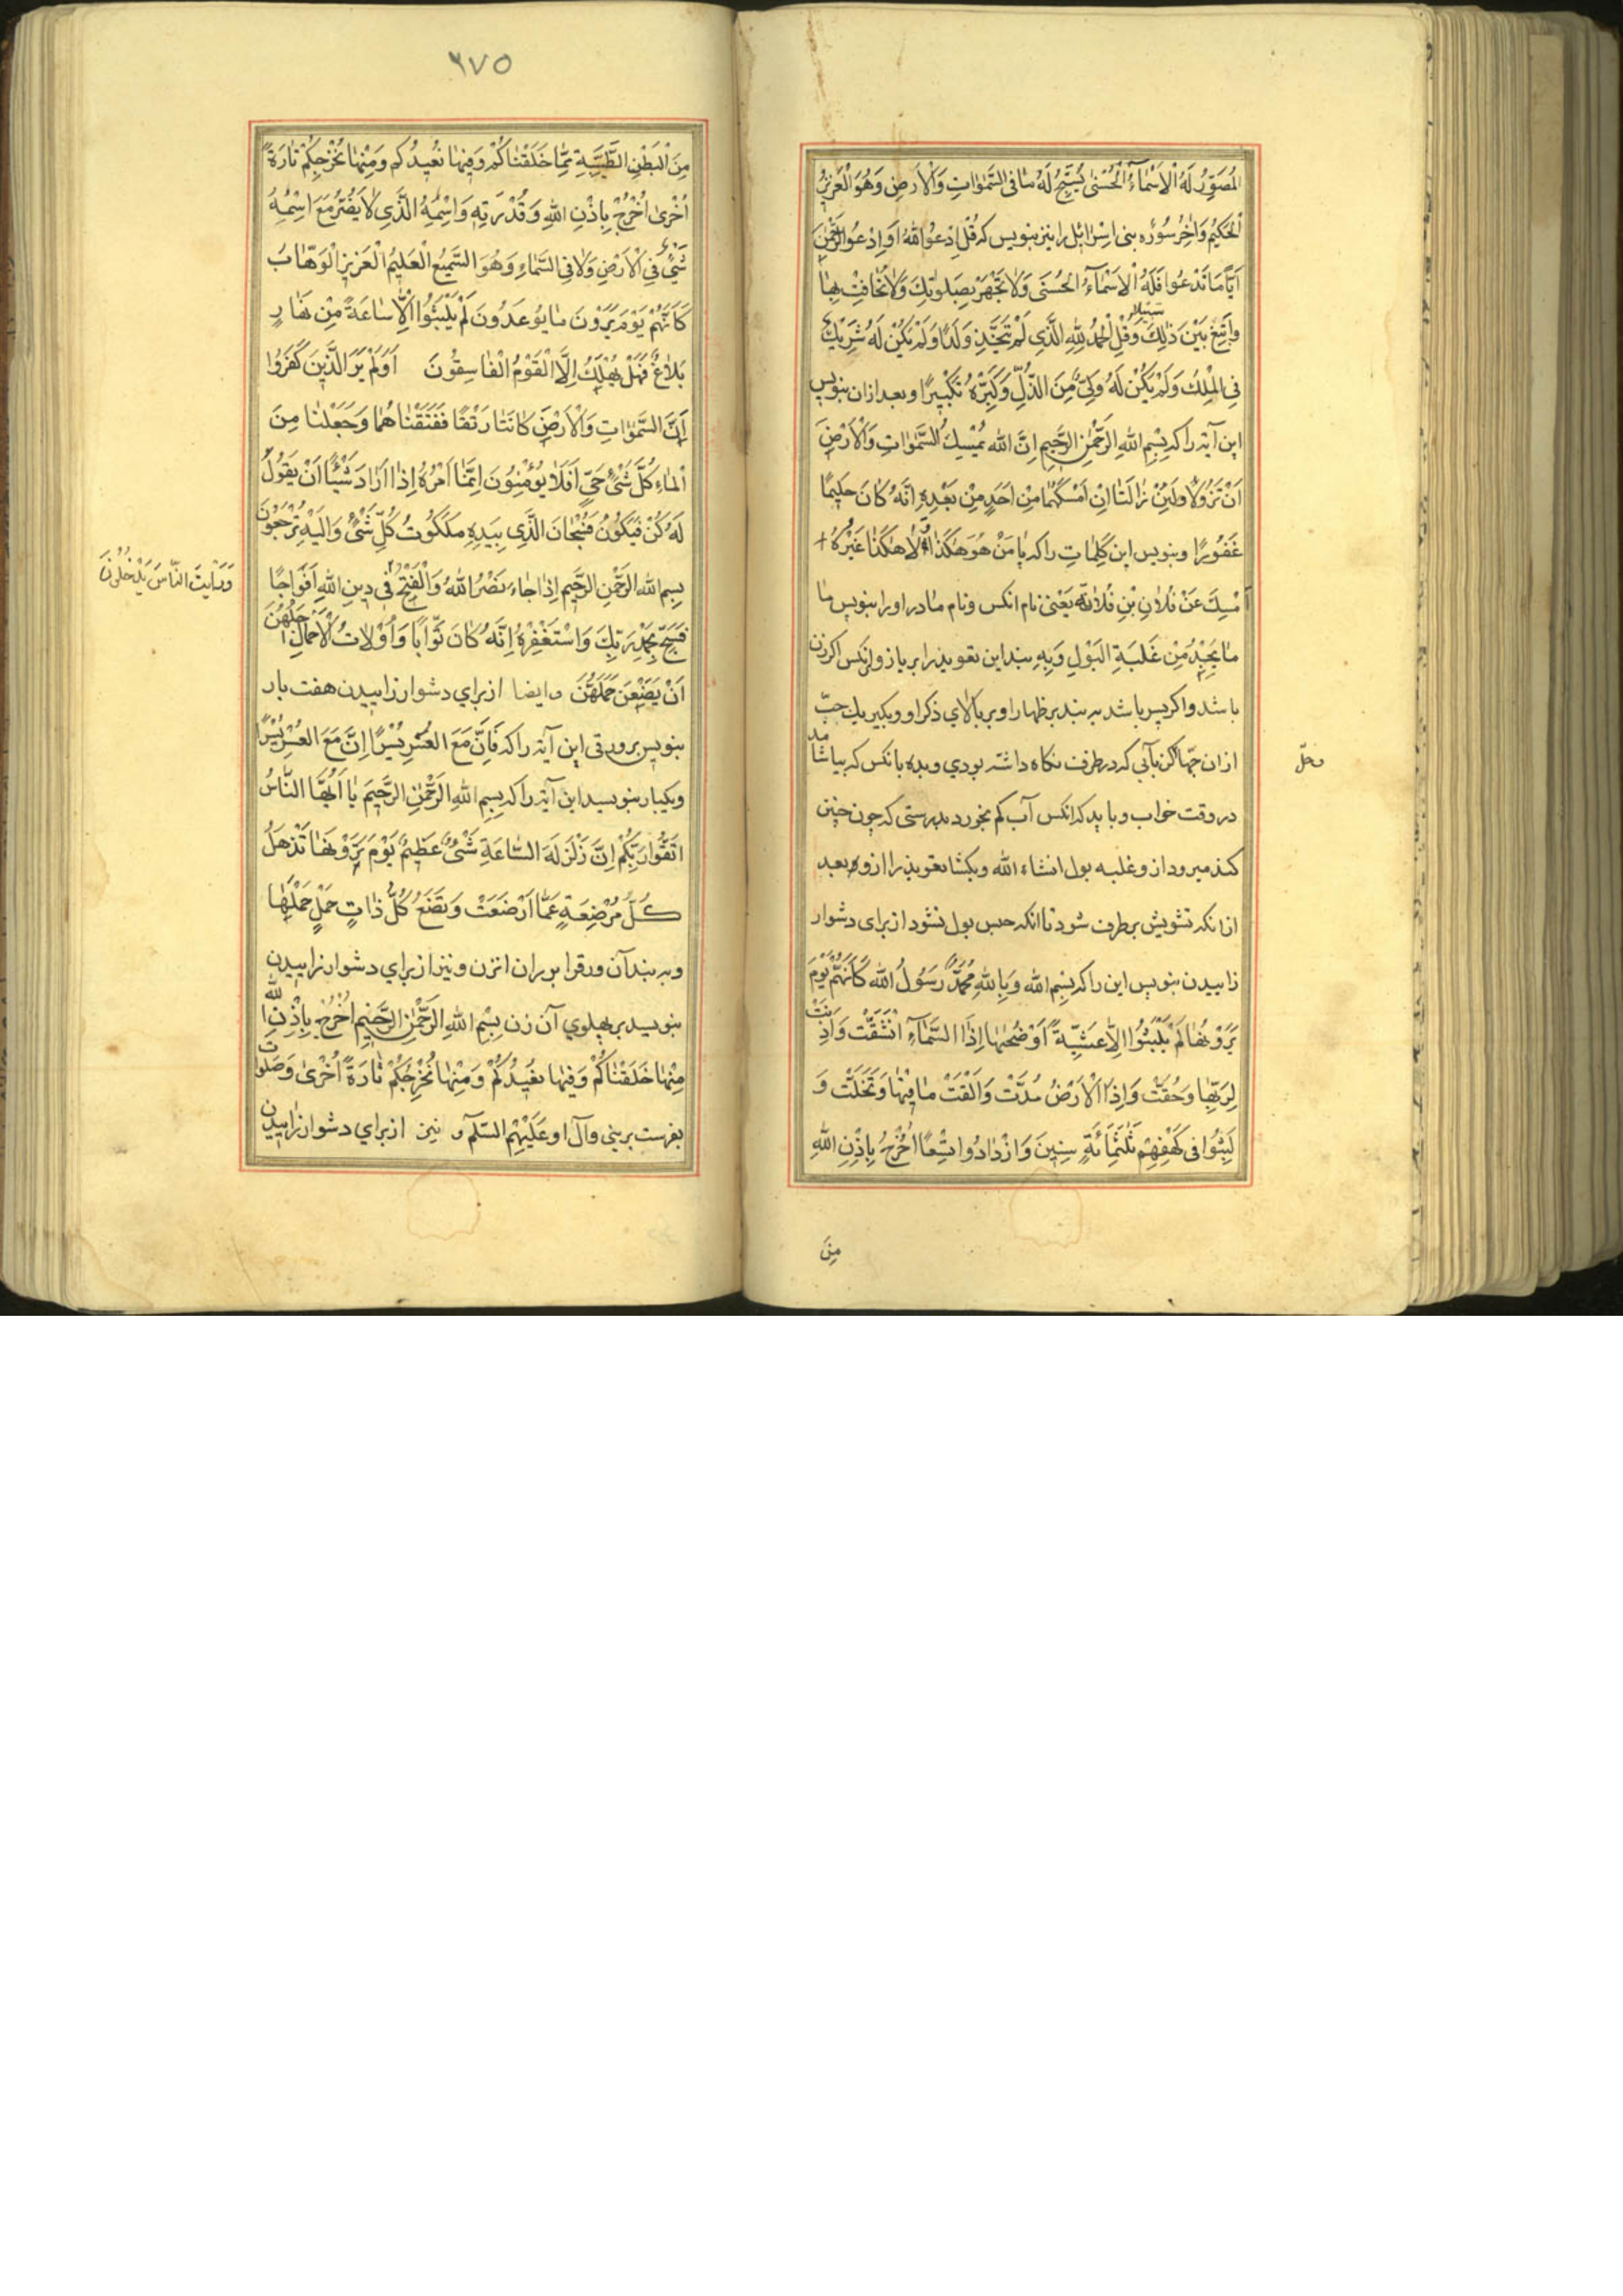 المُصَوِّرُ لَهُ الْاَسْمَآءُ الْحُسْنٰى يُسَبِّحُ لَهُ مٰا فِى السَّمٰوٰاتِ وَالْاَرْضِ وَهُوَ الْعَزِيزُ
الْحَكيُم وَاٰخِرُ سُوُرۀ بنى اسْرٰائيل را نيز بنويس كه قُلِ ادْعُوا اللهَ اَوِ ادْعُوا الرَّحْمٰنَ
اَيًّا مَا تَدْعُوا فَلَهُ الْاَسْمٰآءُ الْحُسْنَى وَلاٰ تَجْهَرْ بِصَلوٰتِكَ وَلاٰ تُخٰافِتْ بِهٰا
وَابْتَغِ بَيْنَ ذٰلِكَ سَبيلاً وَقُلِ الْحَمْدُ لِلّٰهِ الَّذِي لَمْ يَتَّخِذْ وَلَدًا وَلَمْ يَكُنْ لَهُ شَرِيكٌ
فِى الْمُلْكِ وَلَمْ يَكُنْ لَهُ وَلِىٌّ مِنَ الذُّلِّ وَكَبِّرْهُ تَكْبِيرًا و بعد ازان بنويس
اين آيه را كه بِسْمِ اللهِ الرَّحْمٰنِ الرَّحِيمِ اِنَّ الله يُمْسِكُ السَّمٰوٰاتِ وَالْاَرْضَ
اَنْ تَزُولاٰ وَلَئِنْ زٰالَتٰا اِنْ اَمْسَكَهُمٰا مِنْ اَحَدٍ مِنْ بَعْدِهِ اِنَّهُ كٰانَ حَلِيمًا
غَفُورًا و بنويس اين كَلِمٰاتِ را كه يٰا مَنْ هُوَ هٰكَذٰا وَلاٰ هٰكَذٰا غَيْرُهُ
اَمْسِكْ عَنْ فُلاٰنِ بْنِ فُلاٰنَة يَعْنى نام انكس و نام مٰادر او را بنويس مٰا
مٰا يَجِدُ مِنْ غَلَبَةِ الْبَوْلِ وَبِهِ بند اين تعويذ را بر انكس اكر زن
باشد و اكر پسر باشد به بند بر ظهار او بر بٰالاي ذكر او و بكير يك حبّ
ازان حبّها كن بآبى كه در ظرف نكاه داشته بودي و بده بانكس كه بياشامد
در وقت خواب و بايد كه انكس آب كم بخورد بدرستى كه چون چنين
كند ميرود از و غلبه بول انشاء الله و بكشا تعويذ را از و بعد
ازانكه تشويش برطرف شود تا انكه حبس بول نشود از براى دشوار
زاييدن بنويس اين را كه بِسْمِ الله وَبِاللهِ مُحَمَّدٌ رَسُولُ الله كَاَنَّهُمْ يَوْمَ
يَرَوْنَهٰا لَمْ يَلْبَثُوُا اِلاّٰ عَشِيَّةً اَوْ ضُحٰيهٰا اِذَا السَّمٰآءُ انْشَقَّتْ وَاَذِنَتْ
لِرَبِّهٰا وَحُقَّتْ وَاِذَا الْاَرْضُ مُدَّتْ وَاَلْقَتْ مٰا فِيْهٰا وَتَخَلَّتْ وَ
لَبِثُوا فى كَهْفِهِمْ ثَلٰثَمِائَةٍ سِنِينَ وَازْدٰادُوا تِسْعًا اُخْرُجْ بِاِذْنِ اللهِ
مِنَ
و حلّ
٦٧٥
مِنَ الْبَطْنِ الطَّيِّبَةِ مِمّٰا خَلَقْنٰاكُمْ وَفِيهٰا نُعِيدُكم وَمِنْهٰا نُخْرِجُكُمْ تٰارَةً
اُخْرىٰ اُخْرُجْ بِاِذْنِ اللهِ وَقُدْرَتِهِ وَاِسْمِهُ الَّذِى لاٰ يَضُرُّ مَعَ اسْمِهِ
شَىْءٌ فِى الْاَرْضِ وَلاٰ فِى السَّمٰاءِ وَهُوَ السَّمِيعُ الْعَلِيمُ الْعَزِيزُ الْوَهّٰابُ
كَاَنَّهُمْ يَوْمَ يَرَوْنَ مٰا يوُعَدُونَ لَمْ يَلْبَثُوُا اِلاّٰ سٰاعَةً مِنْ نَهٰارٍ
بَلاٰغٌ فَهَلْ يُهْلَكُ اِلَّا الْقَوْمُ الْفٰاسِقُونَ اَوَلَمْ يَرَ الَّذِينَ كَفَرُوا
اَنَّ السَّمٰوٰاتِ وَالْاَرْضَ كٰانَتٰا رَتْقًا فَفَتَقْنٰاهُمٰا وَجَعَلْنٰا مِنَ
الْمٰاءِ كُلَّ شَىْءٍ حَىٍّ اَفَلاٰ يُؤْمِنُونَ اِنَّمٰا اَمْرُهُ اِذٰا اَرٰادَ شَيْئًا اَنْ يَقُولَ
لَهُ كُنْ فَيَكُونُ فَسُبْحٰانَ الَّذِى بِيَدِهِ مَلَكُوتُ كُلِّ شَىْءٍ وَاِلَيْهِ تُرْجَعُونَ
بِسِم الله الرَّحْمٰنِ الرَّحِيمِ اِذٰا جٰاءَ نَصْرُ اللهُ وَالْفَتْحُ فى دِينِ اللهِ اَفْوٰاجًا
وَرَاَيْتَ النّٰاسَ يَدْخُلُونَ
فَسَبِّحْ بِحَمْدِ رَبِّكَ وَاسْتَغْفِرْهُ اِنَّهُ كٰانَ تَوّٰابًا وَاُوْلاٰتُ الْاَحْمٰالِ اَجَلُهُنَّ
اَنْ يَضَعْنَ حَمْلَهُنَّ و ايضا از براي دشوار زاييدن هفت بار
بنويس بر ورقى اين آيه را كه فَاِنَّ مَعَ الْعُسْرِ يُسْرًا اِنَّ مَعَ الْعُسْرِ يُسْرًا
و يكبار بنويسيد اين آيه را كه بِسِمِ اللهِ الرَّحْمٰنِ الرَّحِيمَ يٰا اَيُّهَا النّٰاسُ
اتَّقُوُا رَبَّكُمْ اِنَّ زَلْزَلَةَ السّٰاعَةِ شَىْءٌ عَظِيمٌ يَوْمَ تَرَوْنَهٰا تَذْهَلُ
كُلُّ مُرْضِعَةٍ عَمّٰا اَرْضَعَتْ وَتَضَعُ كُلُّ ذٰاتِ حَمْلٍ حَمْلَهٰا
و به بند آن ورق را بر ران انزن و نيز از براي دشوار زاييدن
بنويسيد بر پهلوي آن زن بِسْمِ اللهِ الرَّحْمٰنِ الرَّحِيْمِ اُخْرُجْ بِاِذْنِ اللهِ
مِنْهٰا خَلَقْنٰاكُمْ وَفِيهٰا نعُيدُكُمْ وَمِنْهٰا نُخْرِجُكُمْ تٰارَةً اُخْرىٰ وَصَلَوٰات
بفرست بر نبى وآل او عَلَيْهِمُ السّلٰم و نيز از براي دشوار زاييدن